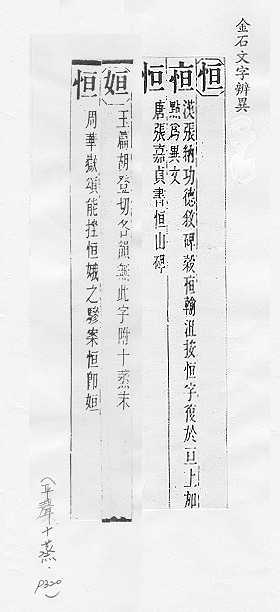 金石文字辨異
恒
恒 漢張納功德敘碑穀恒翰沮按恒字復於旦上加
點爲異文
恒 唐張嘉貞書恒山碑
姮 玉篇胡登切各韻無此字附十蒸末
恒 周華嶽頌能控恒娥之驂案恒卽姮
(平聲十蒸. P320)